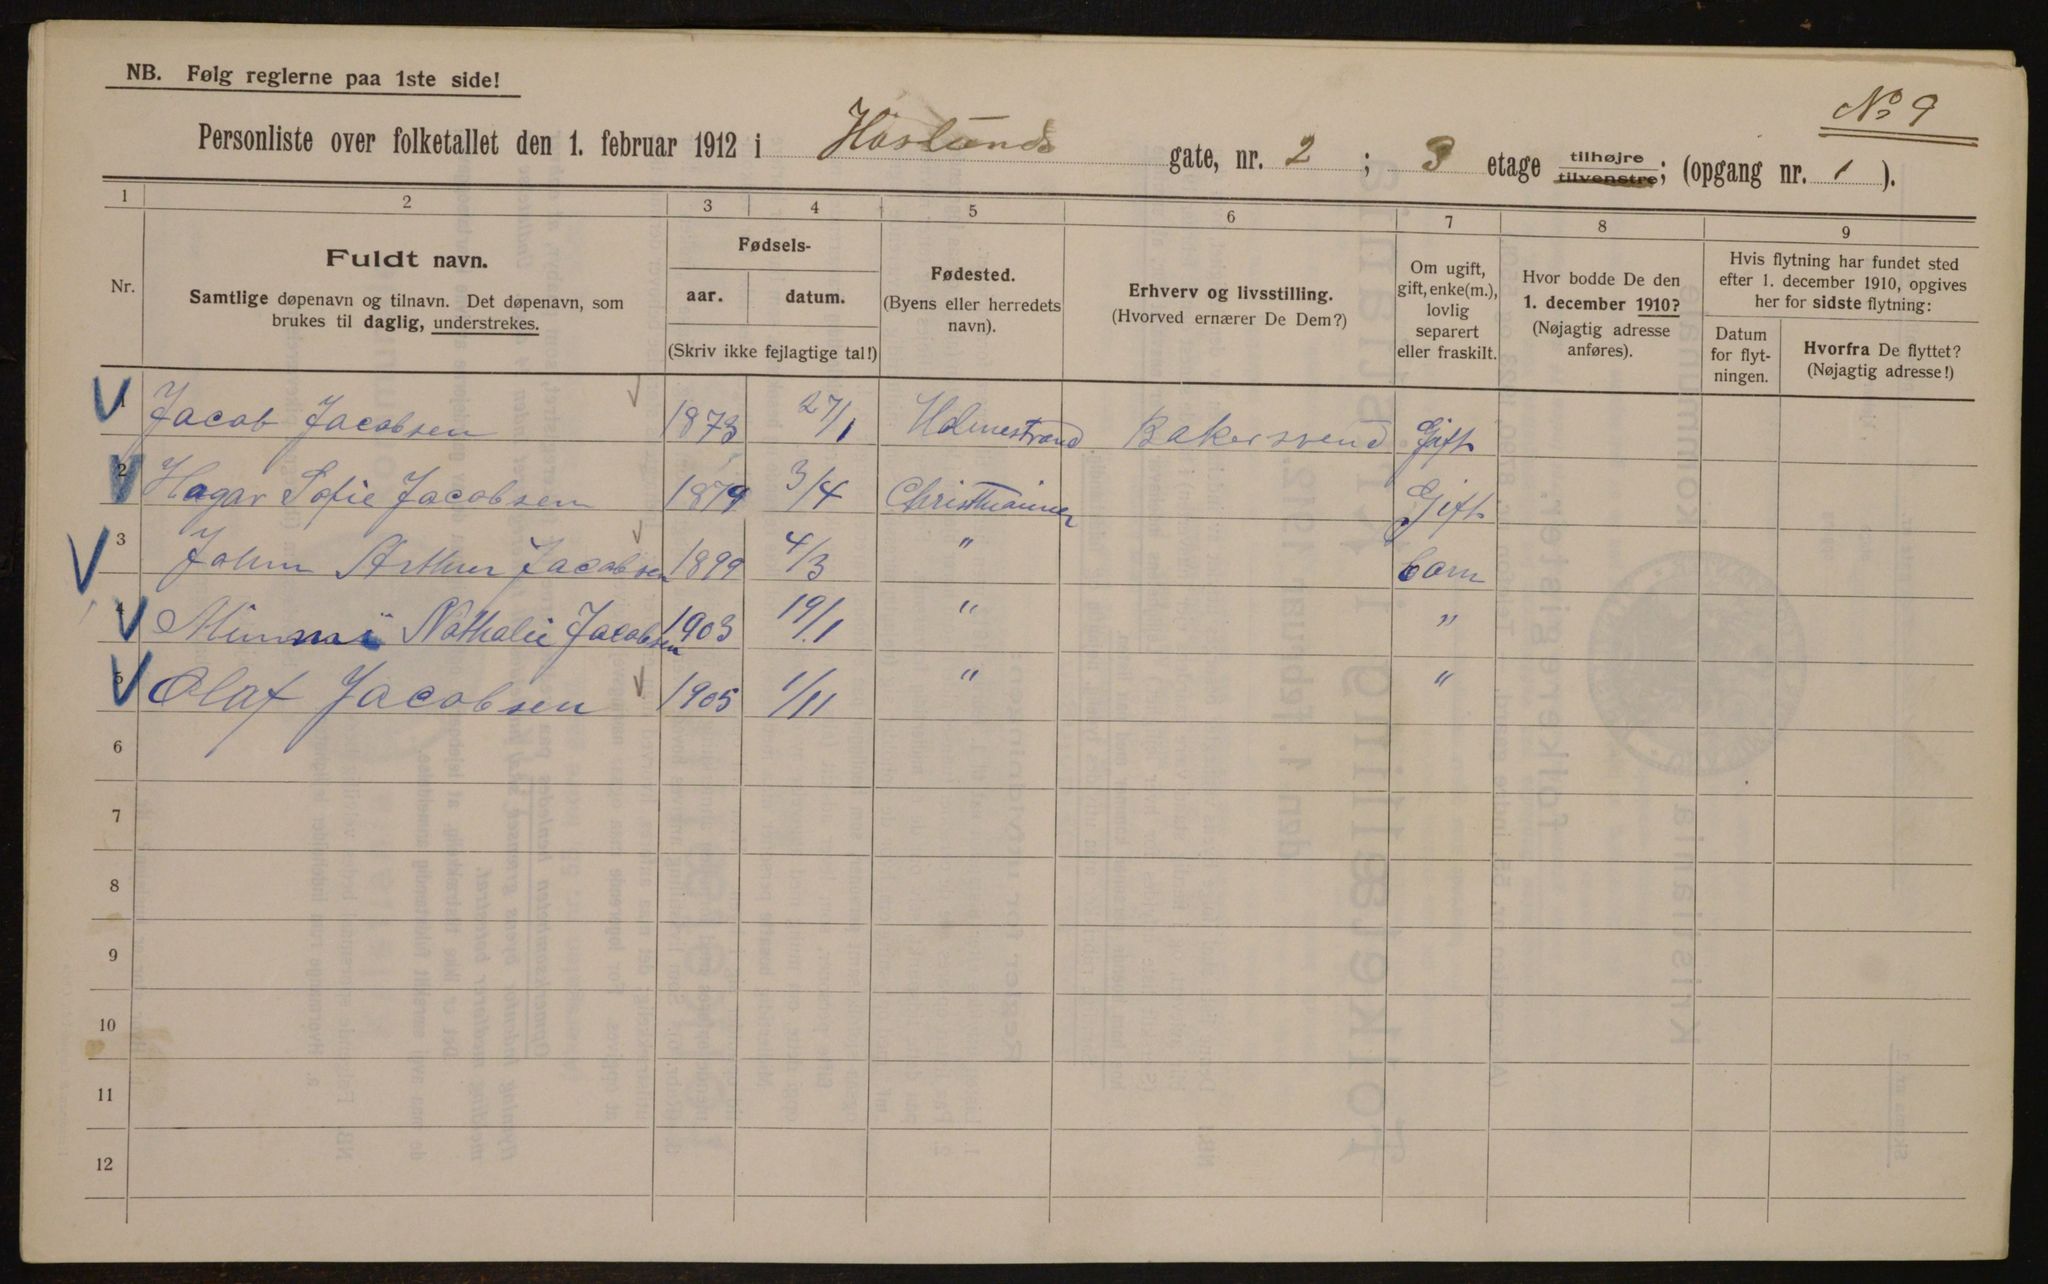 NB. Følg reglerne paa 1ste side!
No 9
Personliste over folketallet den 1. februar 1912 i Haslunds gate, nr. 2 ; 3 etage tilhøjre tilvenstre; (opgang nr. 1 ).
1 2 3 4 5 6 7 8 9
Nr.
Fuldt navn.
Samtlige døpenavn og tilnavn. Det døpenavn, som
brukes til daglig, understrekes.
Fødsels-
aar. datum.
(Skriv ikke fejlagtige tal!)
Fødested.
(Byens eller herredets
navn).
Erhverv og livsstilling.
(Hvorved ernærer De Dem?)
Om ugift,
gift, enke(m.),
lovlig
separert
eller fraskilt.
Hvor bodde De den
1. december 1910?
(Nøjagtig adresse
anføres).
Hvis flytning har fundet sted
efter 1. december 1910, opgives
her for sidste flytning:
Datum
for flyt-
ningen.
Hvorfra De flyttet?
(Nøjagtig adresse!)
1 Jacob Jacobsen 1873 27/1 Holmestrand Bakersvend Gift
2 Hagar Sofie Jacobsen 1879 3/4 Gift
3 John Arthur Jacobsen 1899 4/3 " barn
4 Minmi Nathalie Jacobsen 1903 19/1 " "
5 Olaf Jacobsen 1905 1/11 " "
6
7
8
9
10
11
12